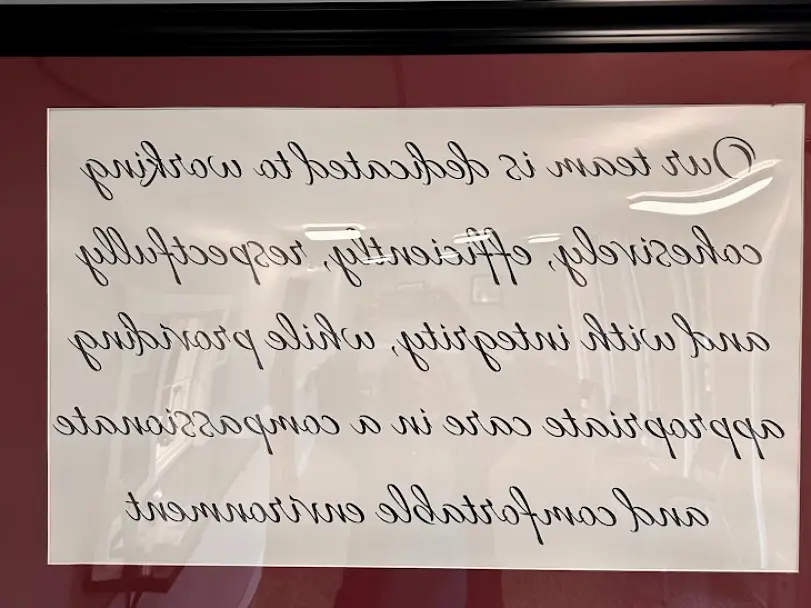 Our team is dedicated to working
cohesively, efficiently, respectfully
and with integrity, while providing
appropriate care in a compassionate
and comfortable environment